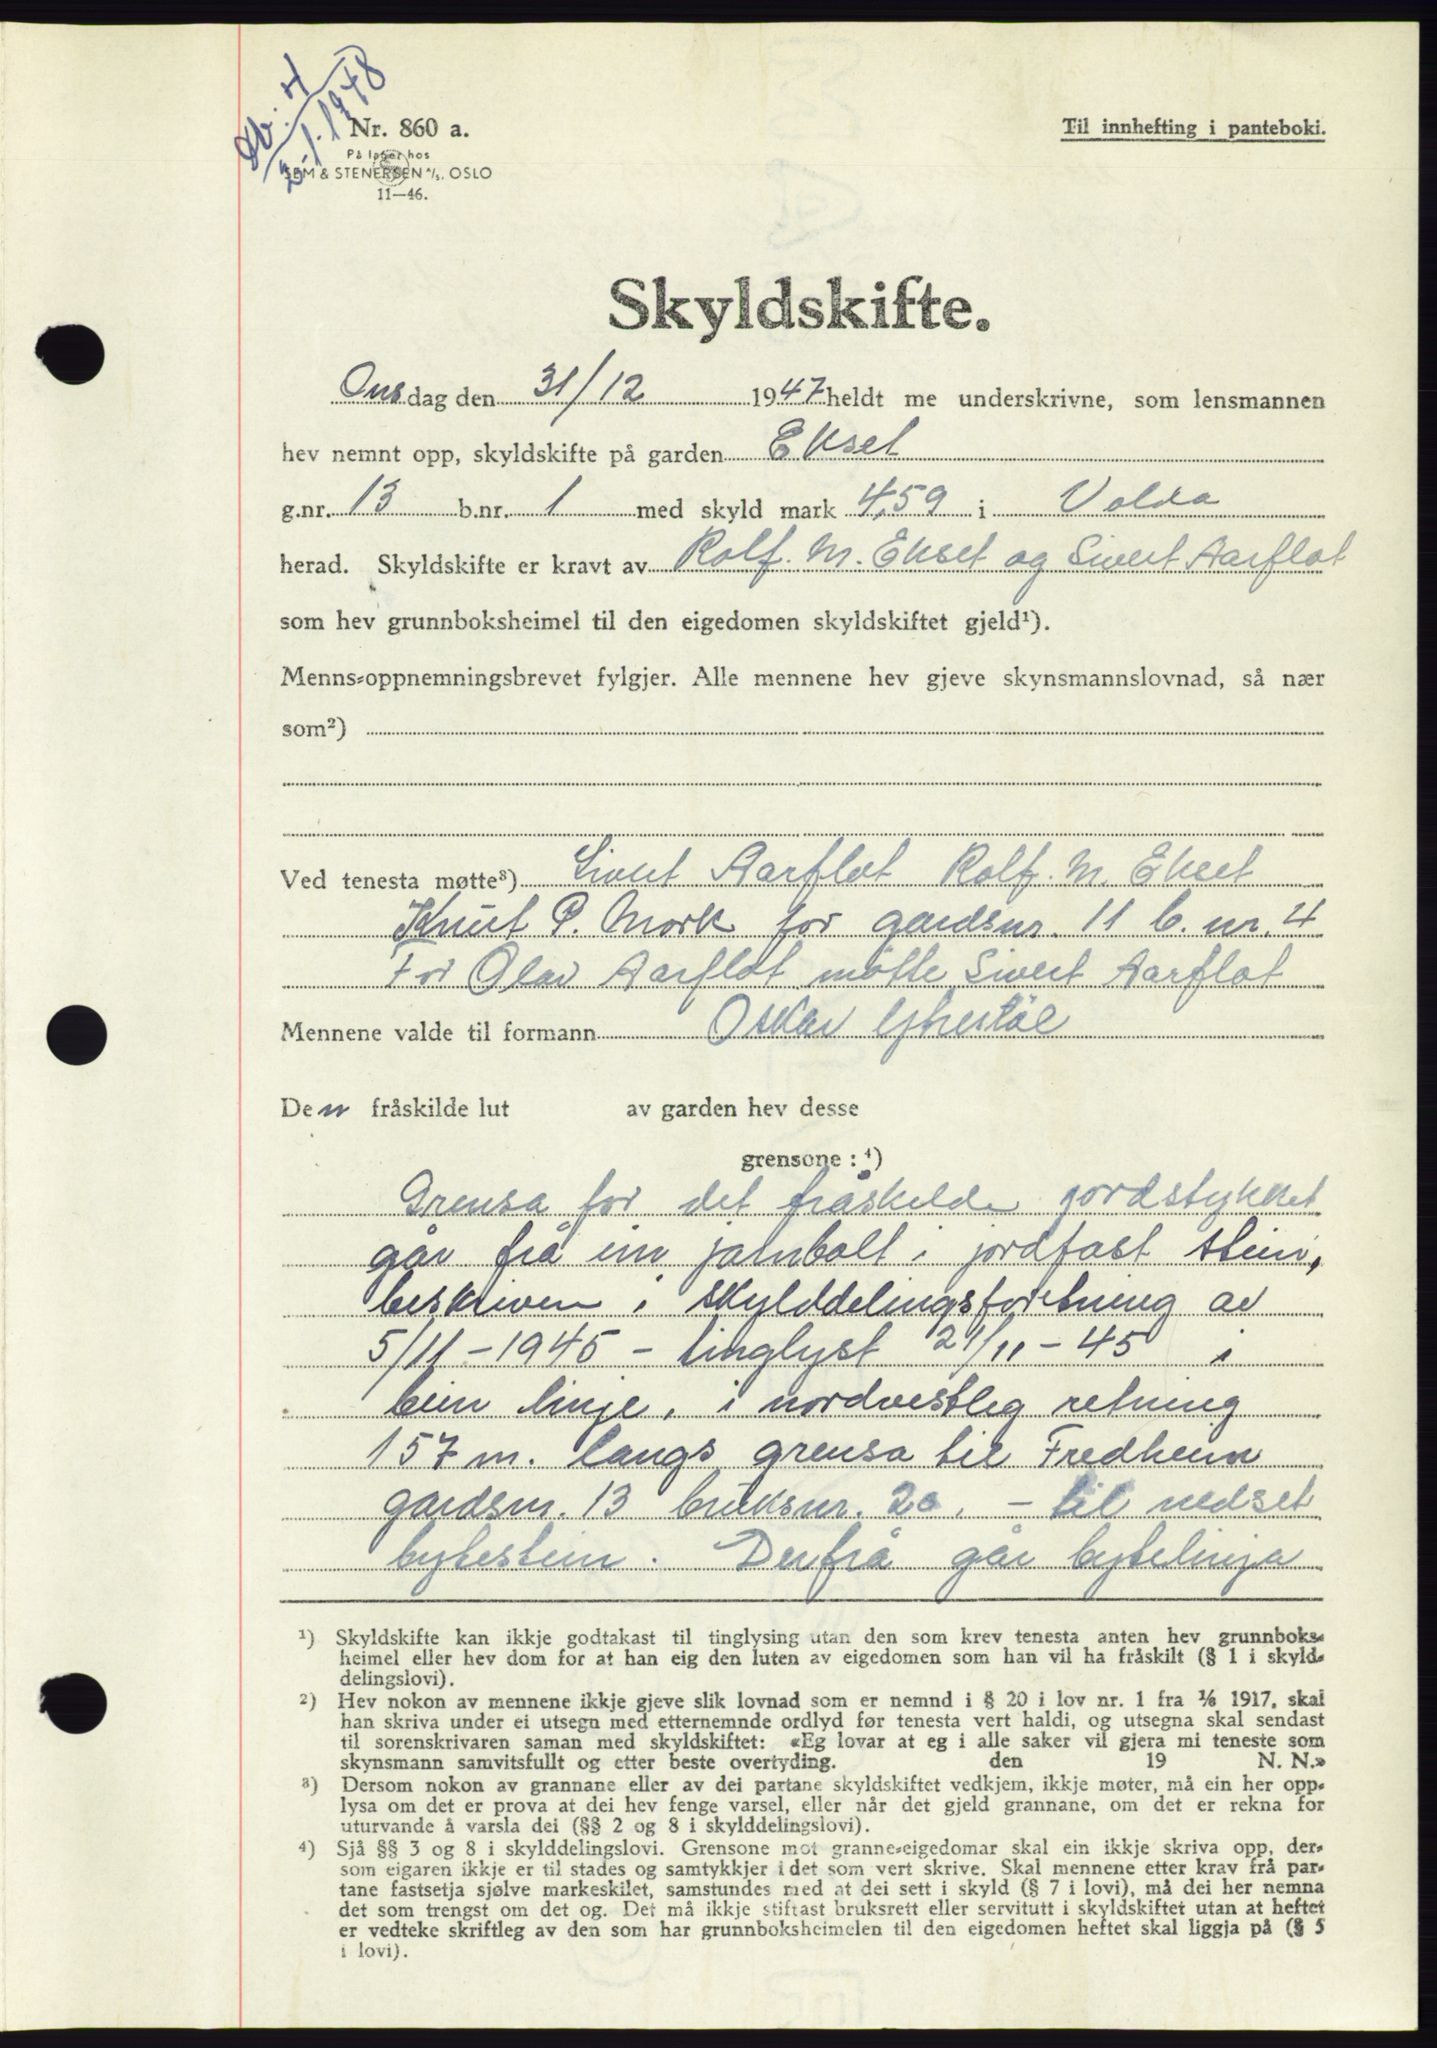 Nr. 4
2/1. 1948
Nr. 860 a.
På lager hos
SEM & STENERSEN A/S, OSLO
11—46.
Til innhefting i panteboki.
Skyldskifte.
Onsdag den 31/12 1947 heldt me underskrivne, som lensmannen
hev nemnt opp, skyldskifte på garden Ekset
g.nr. 13 b.nr. 1 med skyld mark 4,59 i Volda
herad. Skyldskifte er kravt av Rolf. M. Ekset og Sivert Aarflot
som hev grunnboksheimel til den eigedomen skyldskiftet gjeld¹).
Menns-oppnemningsbrevet fylgjer. Alle mennene hev gjeve skynsmannslovnad, så nær
som²)
Ved tenesta møtte³) Sivert Aarflot Rolf. M. Ekset
Knut P. Mork for gardsnr. 11 b. nr. 4
For Olav Aarflot møtte Sivert Aarflot
Mennene valde til formann Oskar
Den fråskilde lut av garden hev desse
grensone : ⁴)
Grensa for det fråskilde jordstykket
går frå ein jarnbolt i jordfast stein,
beskriven i skylddelingsforretning av
5/11 – 1945 – tinglyst 21/11 – 45 i
bein linje, i nordvestleg retning
157 m. langs grensa til Fredheim
gardsnr. 13 bruksnr. 20. – til nedset
bytestein. Derfrå går bytelinja
¹) Skyldskifte kan ikkje godtakast til tinglysing utan den som krev tenesta anten hev grunnboks-
heimel eller hev dom for at han eig den luten av eigedomen som han vil ha fråskilt (§ 1 i skyld-
delingslovi).
²) Hev nokon av mennene ikkje gjeve slik lovnad som er nemnd i § 20 i lov nr. 1 fra 1/6 1917, skal
han skriva under ei utsegn med etternemnde ordlyd før tenesta vert haldi, og utsegna skal sendast
til sorenskrivaren saman med skyldskiftet: «Eg lovar at eg i alle saker vil gjera mi teneste som
skynsmann samvitsfullt og etter beste overtyding. den 19 N. N.»
³) Dersom nokon av grannane eller av dei partane skyldskiftet vedkjem, ikkje møter, må ein her opp-
lysa om det er prova at dei hev fenge varsel, eller når det gjeld grannane, om det er rekna for
uturvande å varsla dei (§§ 2 og 8 i skylddelingslovi).
⁴) Sjå §§ 3 og 8 i skylddelingslovi. Grensone mot granne-eigedomar skal ein ikkje skriva opp, der-
som eigaren ikkje er til stades og samtykkjer i det som vert skrive. Skal mennene etter krav frå par-
tane fastsetja sjølve markeskilet, samstundes med at dei sett i skyld (§ 7 i lovi), må dei her nemna
det som trengst om det og. Det må ikkje stiftast bruksrett eller servitutt i skyldskiftet utan at heftet
er vedteke skriftleg av den som har grunnboksheimelen til den eigedomen heftet skal liggja på (§ 5
i lovi).